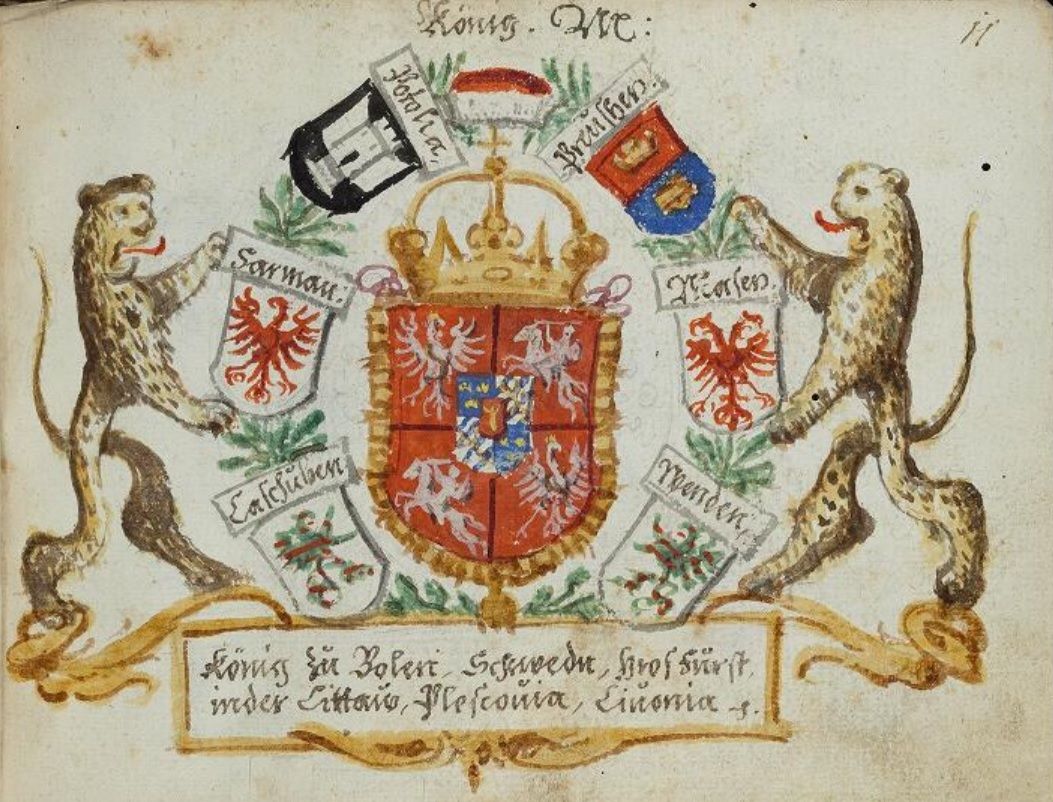 König. M:
11
Podolia
Preüssen.
Sarmat:
Masen.
Casschüben
Wenden.
König zü Polen, Schwedn, Grosfürst
in der Littaw, Plescouia, Liuonia